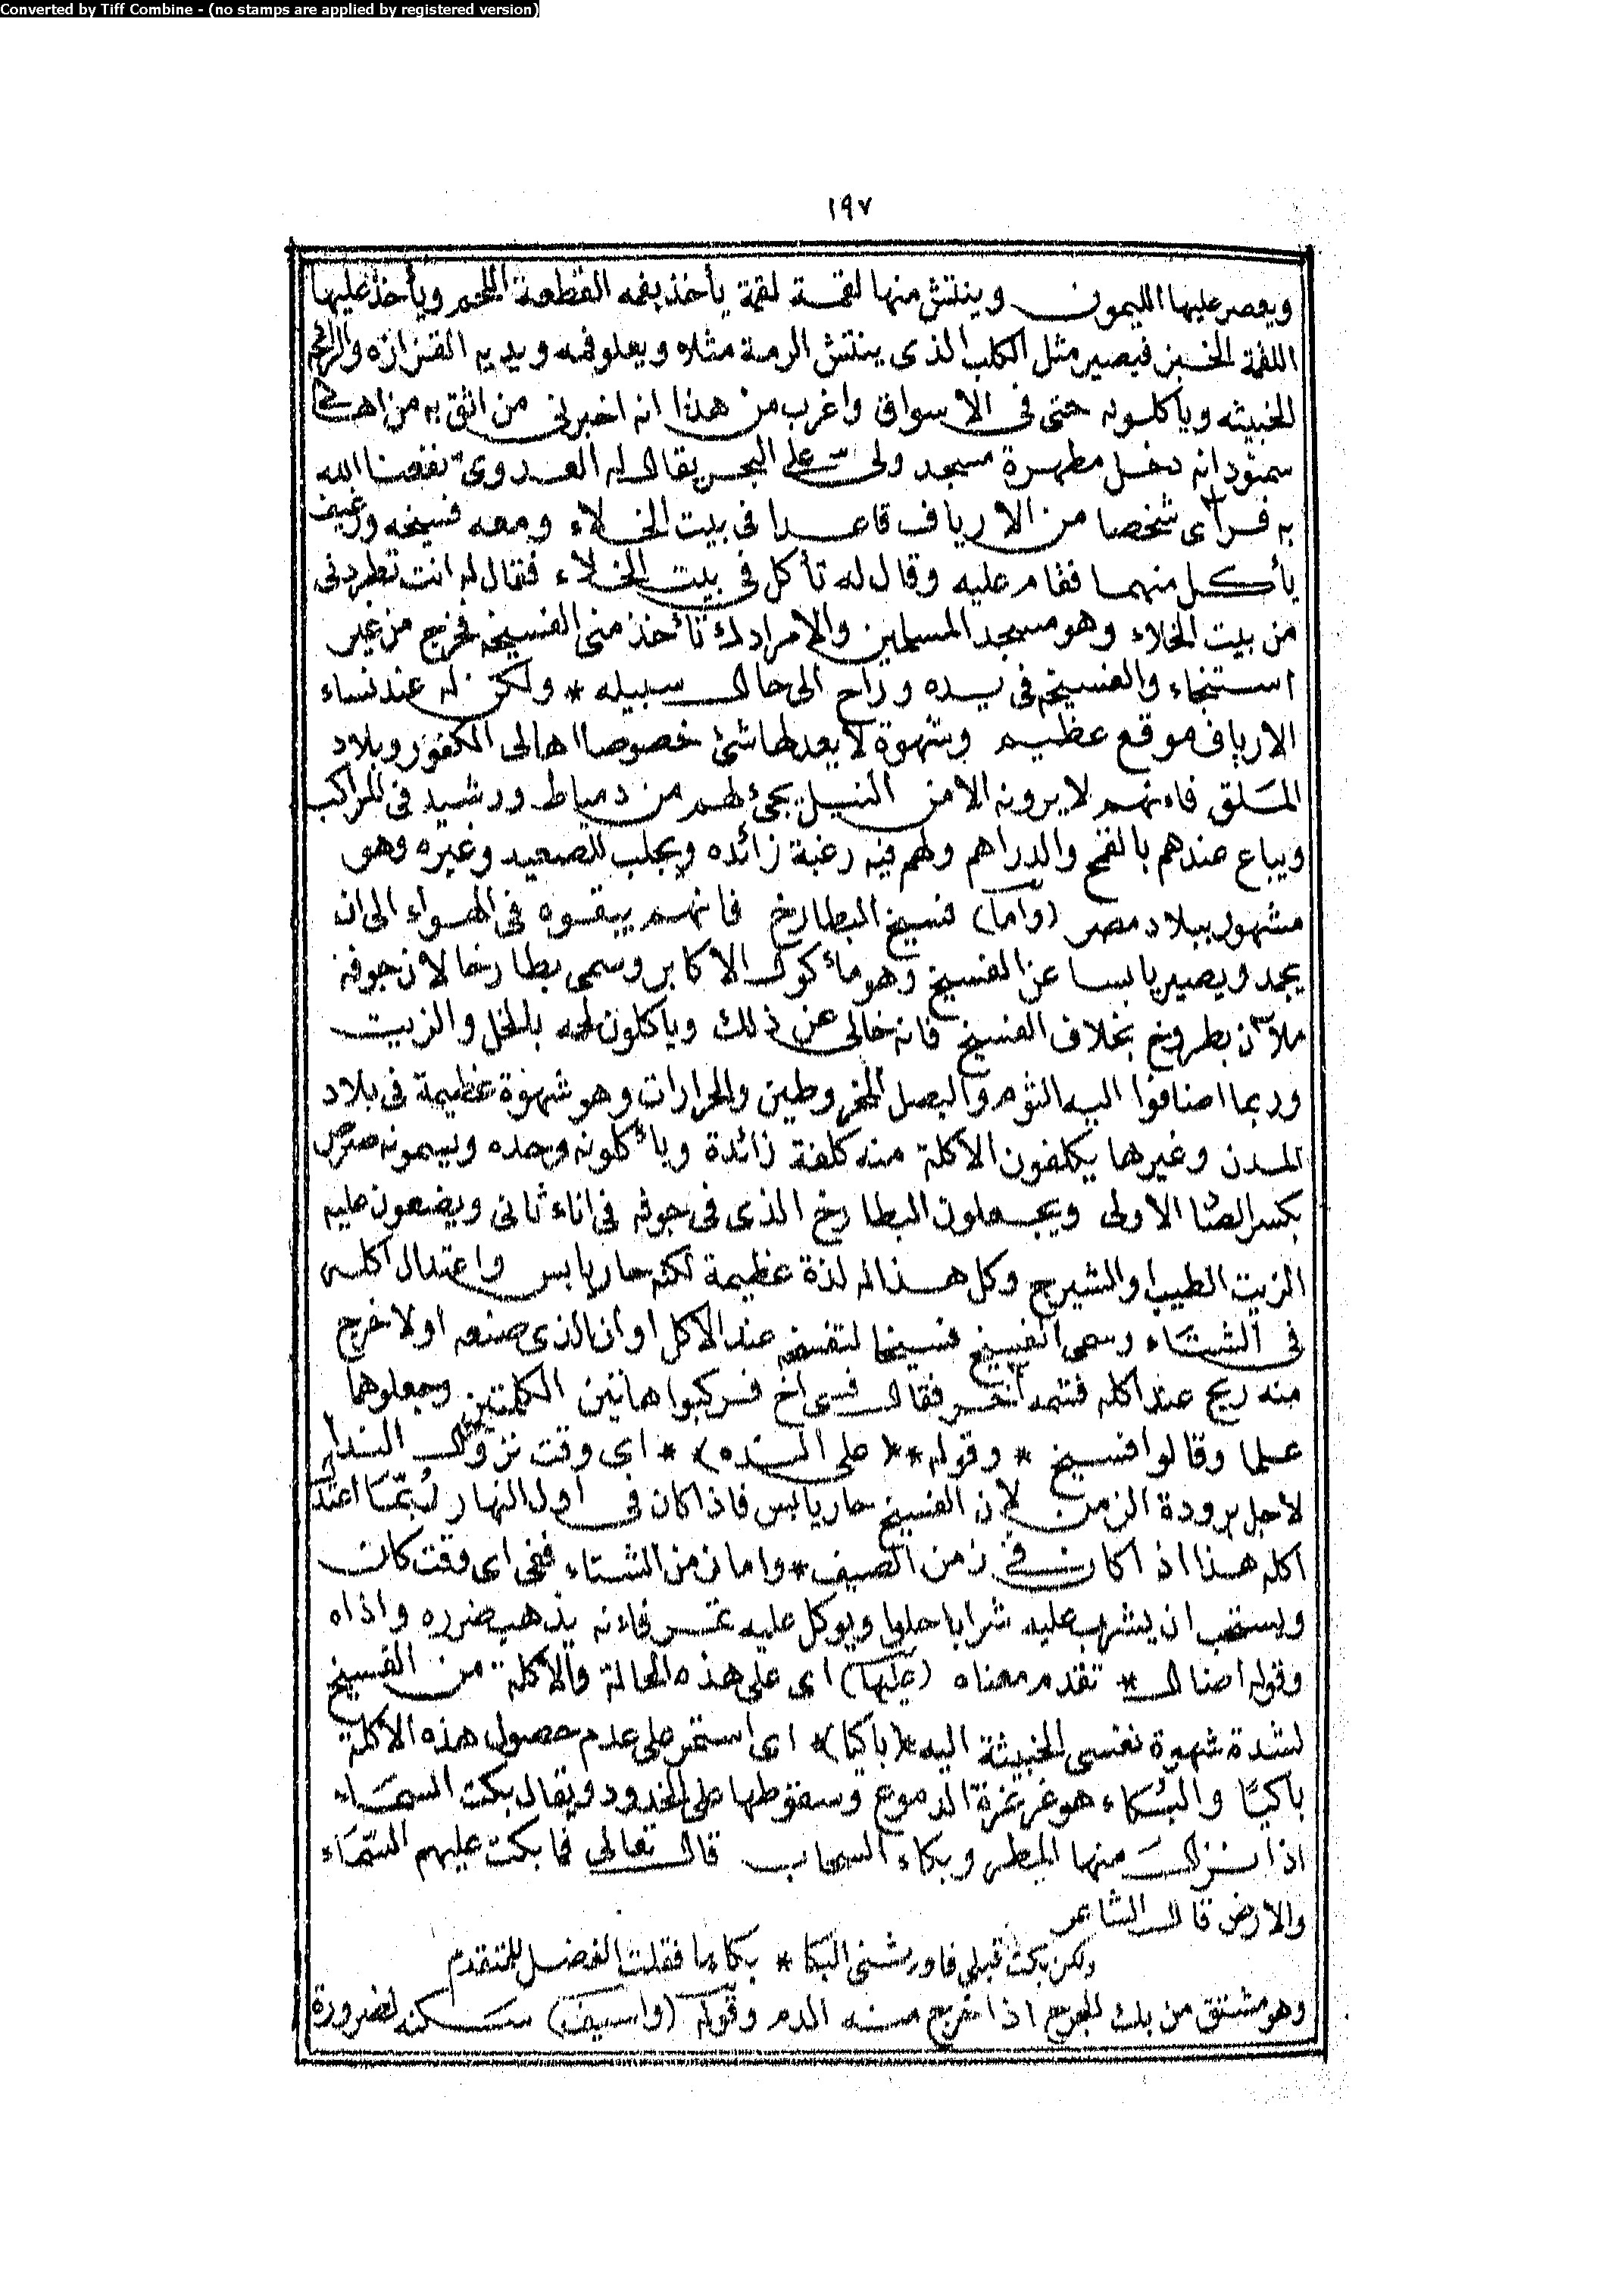 Converted by Tiff Combine - (no stamps are applied by registered version)
١٩٧
ويعصر عليها الليمون وينتش منها لقمة لقمة يأخذ بفمه القطعة اللحم ويأخذ عليها
اللقمة الخبز فيصير مثل الكلب الذى ينتش الرمة مثلاه ويعلو فمه ويديه القنزازه والرائحه
الخبيثه وياكلونه حتى فى الاسواق واغرب من هذا انه اخبرنى من اثق به من اهل
سمنود انه دخل مطهرة مسجد ولى على البحر يقال له العدوى نفعنا الله
به فرأى شخصا من الارياف قاعدا فى بيت الخلاء ومعه فسيخه ورغيف
يأكل منهما فقام عليه وقال له تأكل فى بيت الخلاء فقال له انت تطردنى
من بيت الخلاء وهو مسجد المسلمين والا مرادك تأخذ منى الفسيخه فخرج من غير
استنجاء والفسيخه فى يده وراح الى حال سبيله * ولكن له عند نساء
الارياف موقع عظيم وشهوة لا يعدلها شئ خصوصا اهالى الكفور وبلاد
الملق فانهم لا يرونه الا من النيل يجئ لهم من دمياط ورشيد فى المراكب
ويباع عندهم بالقمح والدراهم ولهم فيه رغبة زائده ويجلب للصعيد وغيره وهو
مشهور ببلاد مصر (واما) فسيخ البطارخ فانهم يبقوه فى الهواء الى ان
يجمد ويصير يابسا عن الفسيخ وهو مأكول الاكابر وسمى بطارخا لان جوفه
ملآن بطروخ بخلاف الفسيخ فانه خالى عن ذلك وياكلون لحمه بالخل والزيت
وربما اضافوا اليه الثوم والبصل المخروطين والحرارات وهو شهوة عظيمة فى بلاد
المدن وغيرها يكلفون الاكلة منه كلفة زائدة ويأكلونه وحده ويسمونه
بكسر الصاد الاولى ويجعلون البطارخ الذى فى جوفه فى اناء ثانى ويضعون عليه
الزيت الطيب والشيرج وكل هذا له لذة عظيمة لكنه حار يابس واعتدال اكله
فى الشتاء وسمى الفسيخ فسيخا لتفسخه عند الاكل او ان الذى صنعه اولا خرج
منه ريح عند اكله فشمه آخر فقال فسى اخ فركبوا هاتين الكلمتين وجعلوها
علما وقالوا فسيخ * وقوله * (على النده) * اى وقت نزول الندا
لاجل برودة الزمن لان الفسيخ حار يابس فاذا كان فى اول النهار ربما اعتدل
اكله هذا اذا كان فى زمن الصيف * واما زمن الشتاء ففى اى وقت كان
ويستحب ان يشرب عليه شرابا حلوا ويوكل عليه تمر فانه يذهب ضرره واذاه
وقوله اضال * تقدم معناه (عليها) اى على هذه الحالة والاكلة من الفسيخ
لشدة شهوة نفسى الخبيثة اليه * (باكيا) * اى استمر على عدم حصول هذه الاكلة
باكيًا والبُكاء هو غرغرة الدموع وسقوطها على الخدود ويقال بكت السماء
اذا نزل منها المطر وبكاء السحاب قال تعالى فما بكت عليهم السّماء
والارض قال الشاعر
ولكن بكت قبلى فاورثنى البكا * بكاءها فقلت الفضل للمتقدم
وهو مشتق من بك الجرح اذا خرج منه الدم وقوله (واسيف) سكنه لضرورة